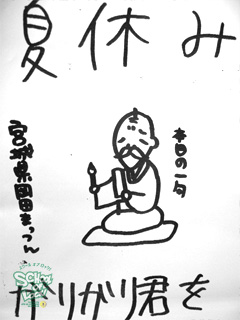 夏休み
本日の一句
ガリガリ君を
宮城県岡田まっつん